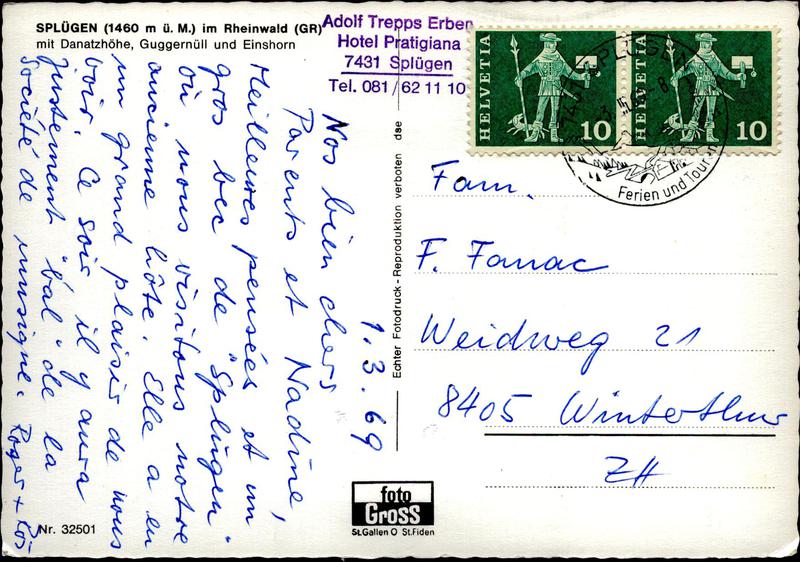 SPLÜGEN (1460 m ü. M.) im Rheinwald (GR)
mit Danatzhöhe, Guggernüll und Einshorn
Adolf Trepps Erben
Hotel Pratigiana
7431 Splügen
Tel. 081/62 11 10
HELVETIA
10
HELVETIA
10
SPLÜGEN
Ferien und Touren
1.3.69
Nos bien chers
Parents et Nadine,
Meilleures pensées et un
gros bec de "Splügen"
où nous visitons notre
ancienne hôte. Elle a eu
un grand plaisir de nous
voir. Ce soir il y aura
justement "bal" de la
société de musique.
Roger + Rös
Echter Fotodruck - Reproduktion verboten dse
Fam.
F. Fanac
Weidweg 21
8405 Winterthur
ZH
foto
Gross
St.Gallen O St.Fiden
Nr. 32501